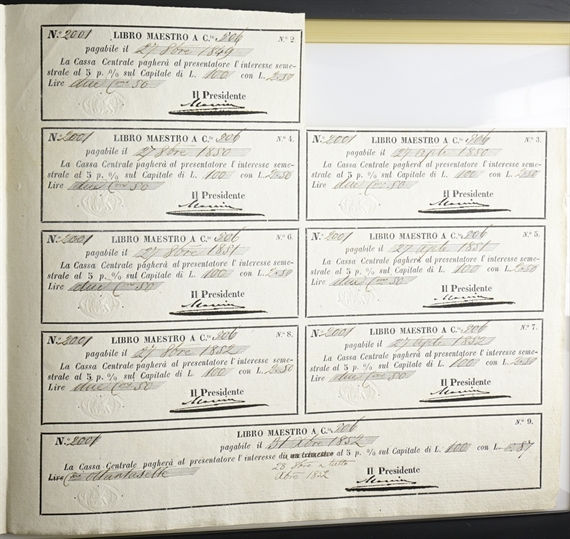 N.º 2001 LIBRO MAESTRO A C.te 206 N.º 2.
pagabile il 27 8bre 1849
La Cassa Centrale pagherà al presentatore l'interesse seme-
strale al 5 p. 0/0 sul Capitale di L. 100 con L. 2.50
Lire due C.mi 50
Il Presidente
N.º 2001 LIBRO MAESTRO A C.te 206 N.º 4.
pagabile il 27 8bre 1850
La Cassa Centrale pagherà al presentatore l'interesse seme-
strale al 5 p. 0/0 sul Capitale di L. 100 con L. 2.50
Lire due C.mi 50
Il Presidente
N.º 2001 LIBRO MAESTRO A C.te 206 N.º 3.
pagabile il 27 aple 1850
La Cassa Centrale pagherà al presentatore l'interesse seme-
strale al 5 p. 0/0 sul Capitale di L. 100 con L. 2.50
Lire due C.mi 50
Il Presidente
N.º 2001 LIBRO MAESTRO A C.te 206 N.º 6.
pagabile il 27 8bre 1851
La Cassa Centrale pagherà al presentatore l'interesse seme-
strale al 5 p. 0/0 sul Capitale di L. 100 con L. 2.50
Lire due C.mi 50
Il Presidente
N.º 2001 LIBRO MAESTRO A C.te 206 N.º 5.
pagabile il 27 aple 1851
La Cassa Centrale pagherà al presentatore l'interesse seme-
strale al 5 p. 0/0 sul Capitale di L. 100 con L. 2.50
Lire due C.mi 50
Il Presidente
N.º 2001 LIBRO MAESTRO A C.te 206 N.º 8.
pagabile il 27 8bre 1852
La Cassa Centrale pagherà al presentatore l'interesse seme-
strale al 5 p. 0/0 sul Capitale di L. 100 con L. 2.50
Lire due C.mi 50
Il Presidente
N.º 2001 LIBRO MAESTRO A C.te 206 N.º 7.
pagabile il 27 aple 1852
La Cassa Centrale pagherà al presentatore l'interesse seme-
strale al 5 p. 0/0 sul Capitale di L. 100 con L. 2.50
Lire due C.mi 50
Il Presidente
N.º 2001 LIBRO MAESTRO A C.te 206 N.º 9.
pagabile il 31 Xbre 1852
La Cassa Centrale pagherà al presentatore l'interesse di al 5 p. 0/0 sul Capitale di L. 100 con L. 87
Lire C.mi Ottantasette
28 8bre a tutto
Xbre 1852
Il Presidente